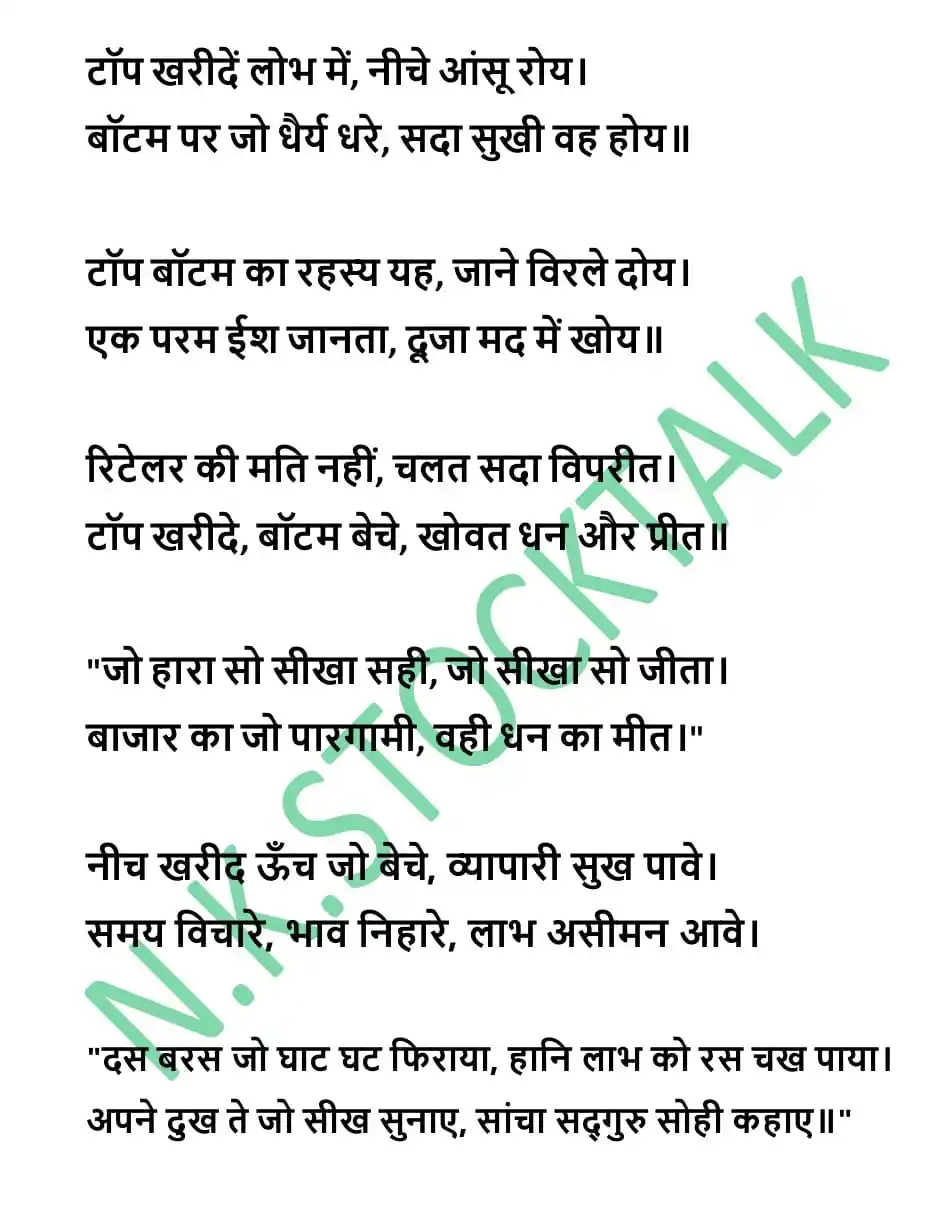 टॉप खरीदें लोभ में, नीचे आंसू रोय।
बॉटम पर जो धैर्य धरे, सदा सुखी वह होय॥
टॉप बॉटम का रहस्य यह, जाने विरले दोय।
एक परम ईश जानता, दूजा मद में खोय॥
रिटेलर की मति नहीं, चलत सदा विपरीत।
टॉप खरीदे, बॉटम बेचे, खोवत धन और प्रीत॥
"जो हारा सो सीखा सही, जो सीखा सो जीता।
बाजार का जो पारगामी, वही धन का मीत।"
नीच खरीद ऊँच जो बेचे, व्यापारी सुख पावे।
समय विचारे, भाव निहारे, लाभ असीमन आवे।
"दस बरस जो घाट घट फिराया, हानि लाभ को रस चख पाया।
अपने दुख ते जो सीख सुनाए, सांचा सद्गुरु सोही कहाए॥"
N.K.STOCKTALK